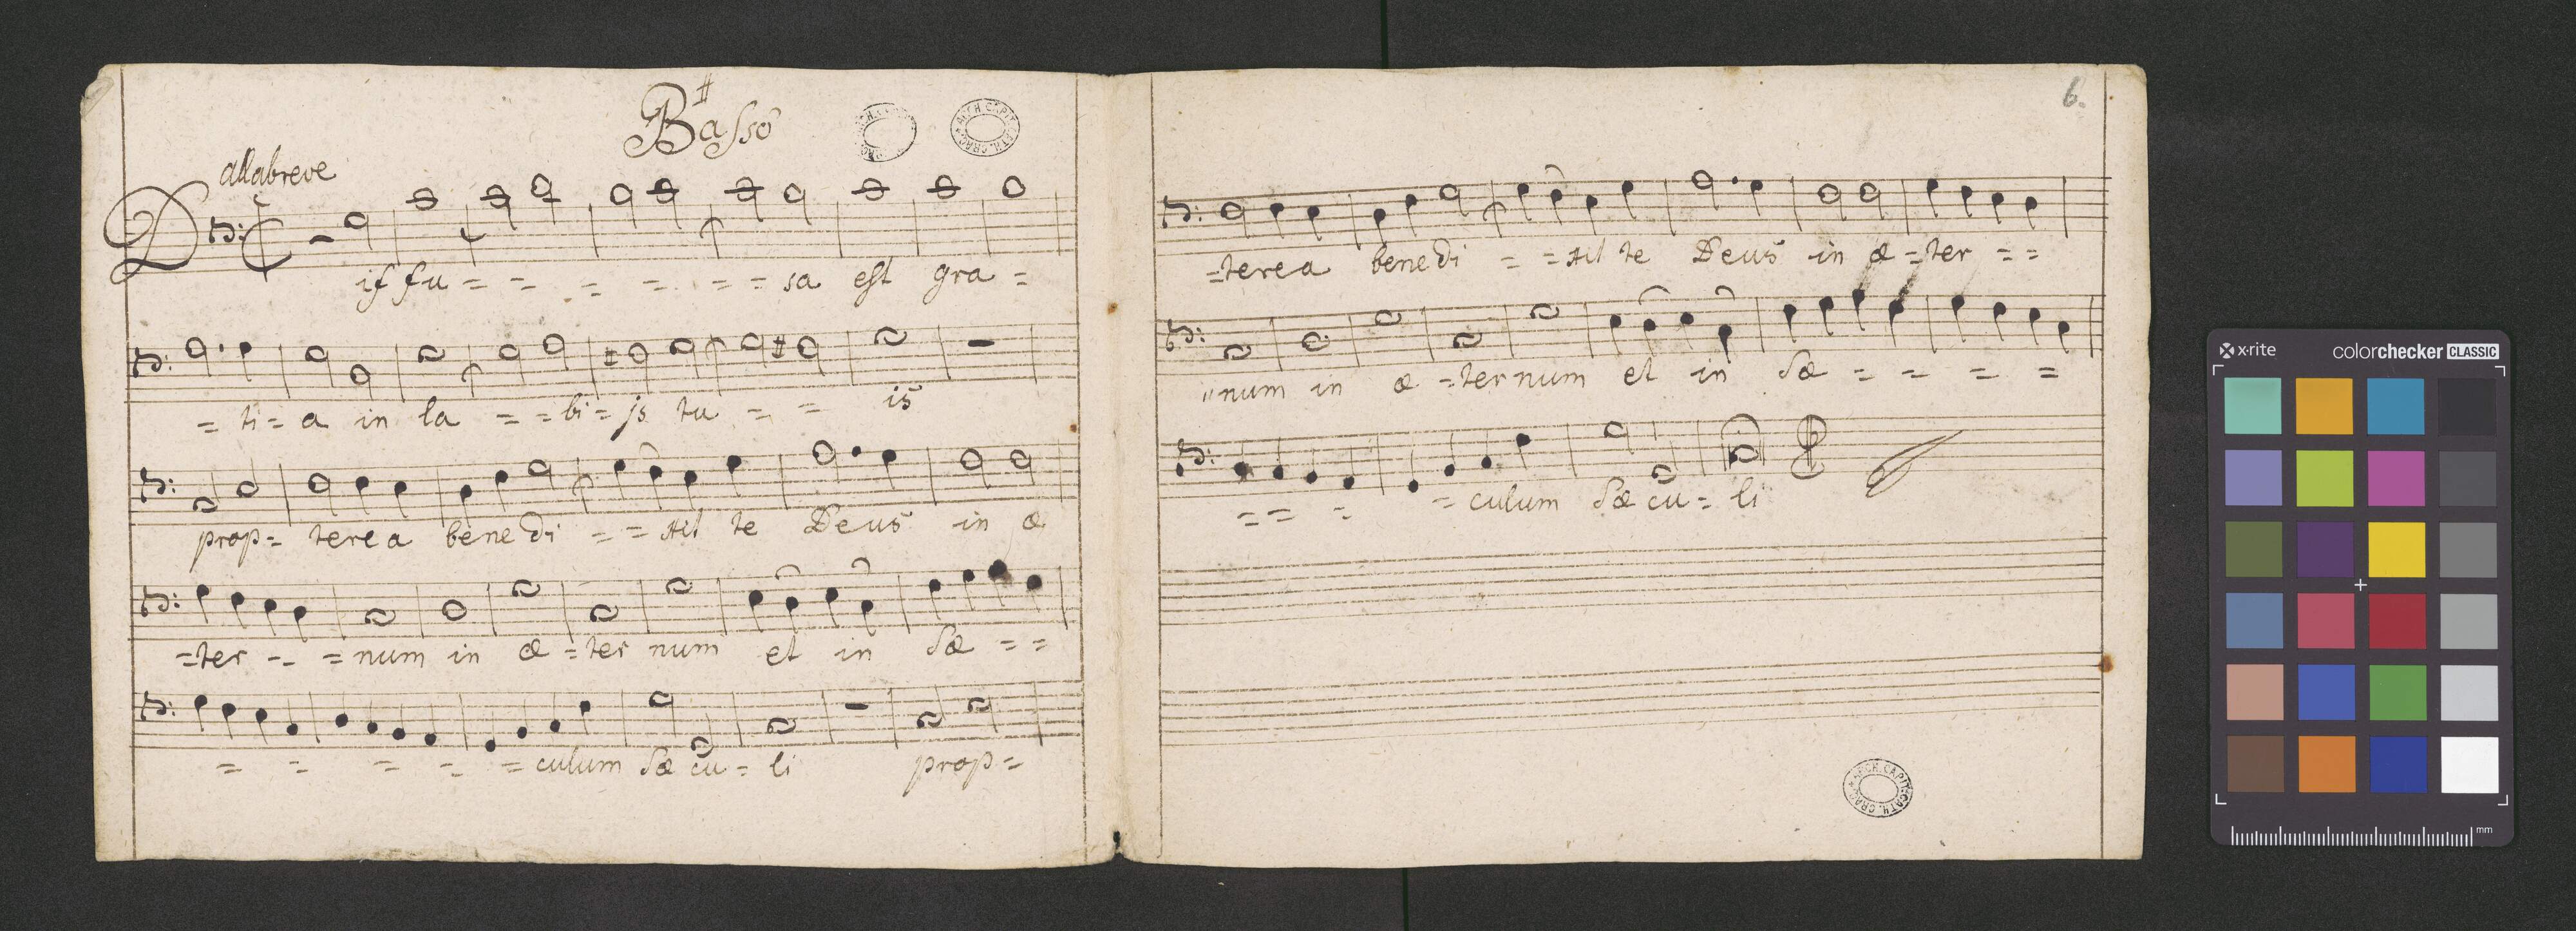 Basso
allabreve
Diffu = - = - = = sa est gra =
= ti = a in la = = bi = js tu = = is
prop = terea benedi = = xit te Deus in æ
= ter - = = num in æ = ter num et in Sæ = =
= = = = = culum Sæ cu = li prop =
6.
= terea benedi = = xit te Deus in æ = ter = =
"num in æ = ternum et in Sæ = = = =
= = = = culum Sæ cu = li
ARCH. CAPIT. CATH. CRAC.
x-rite colorchecker CLASSIC
mm